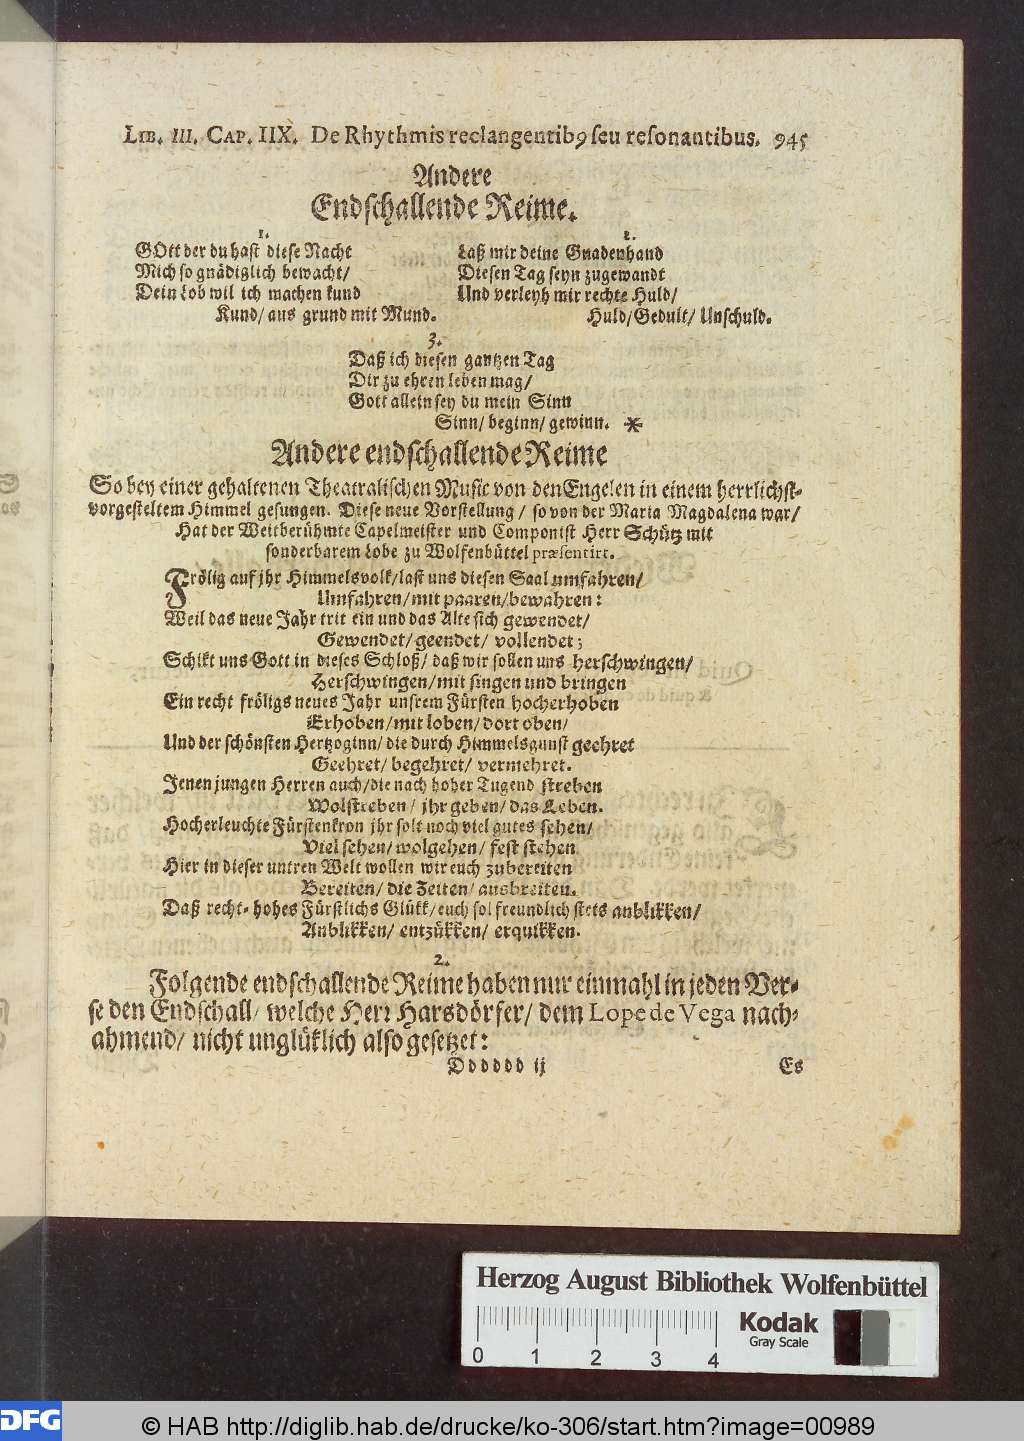 LIB. III. CAP. IIX. De Rhythmis reclangentibꝰ ſeu reſonantibus. 945
Andere
Endſchallende Reime.
1.
GOtt der du haſt dieſe Nacht
Mich ſo gnädiglich bewacht/
Dein Lob wil ich machen kund
Kund/ aus grund mit Mund.
2.
Laß mir deine Gnadenhand
Dieſen Tag ſeyn zugewandt
Und verleyh mir rechte Huld/
Huld/ Gedult/ Unſchuld.
3.
Daß ich dieſen gantzen Tag
Dir zu ehren leben mag/
Gott allein ſey du mein Sinn
Sinn/ beginn/ gewinn. *
Andere endſchallende Reime
So bey einer gehaltenen Theatraliſchen Muſic von den Engelen in einem herrlichſt-
vorgeſteltem Himmel geſungen. Dieſe neue Vorſtellung / ſo von der Maria Magdalena war/
Hat der Weitberühmte Capelmeiſter und Componiſt Herr Schütz mit
ſonderbarem Lobe zu Wolfenbüttel præſentirt.
Frölig auf jhr Himmelsvolk/ laſt uns dieſen Saal umfahren/
Umfahren/ mit paaren/ bewahren:
Weil das neue Jahr trit ein und das Alte ſich gewendet/
Gewendet/ geendet/ vollendet;
Schikt uns Gott in dieſes Schloß/ daß wir ſollen uns herſchwingen/
Herſchwingen/ mit ſingen und bringen
Ein recht fröligs neues Jahr unſrem Fürſten hocherhoben
Erhoben/ mit loben/ dort oben/
Und der ſchönſten Hertzoginn/ die durch Himmelsgunſt geehret
Geehret/ begehret/ vermehret.
Jenen jungen Herren auch/ die nach hoher Tugend ſtreben
Wolſtreben/ jhr geben/ das Leben.
Hocherleuchte Fürſtenkron jhr ſolt noch viel gutes ſehen/
Viel ſehen/ wolgehen/ feſt ſtehen
Hier in dieſer untren Welt wollen wir euch zubereiten
Bereiten/ die Zeiten/ ausbreiten.
Daß recht-hohes Fürſtlichs Glükk/ euch ſol freundlich ſtets anblikken/
Anblikken/ entzükken/ erquikken.
2.
Folgende endſchallende Reime haben nur einmahl in jeden Ver-
ſe den Endſchall/ welche Herr Harsdörfer/ dem Lope de Vega nach-
ahmend/ nicht unglüklich alſo geſetzet:
Dddddd ij
Es
Herzog August Bibliothek Wolfenbüttel
Kodak
Gray Scale
0 1 2 3 4
DFG
© HAB http://diglib.hab.de/drucke/ko-306/start.htm?image=00989